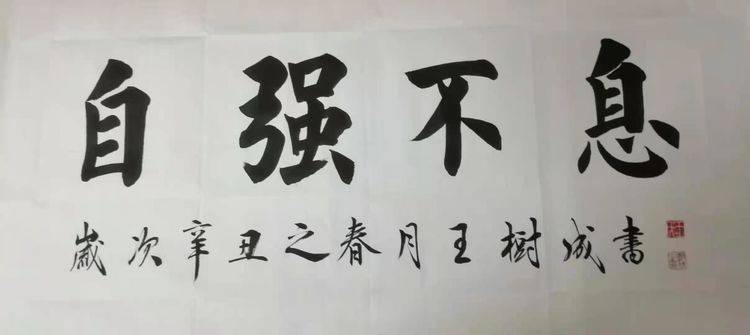 自强不息
歲次辛丑之春月王樹成書